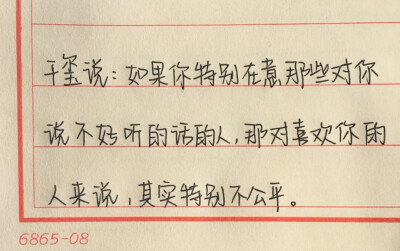 千玺说：如果你特别在意那些对你
说不好听的话的人，那对喜欢你的
人来说，其实特别不公平。
6865-08